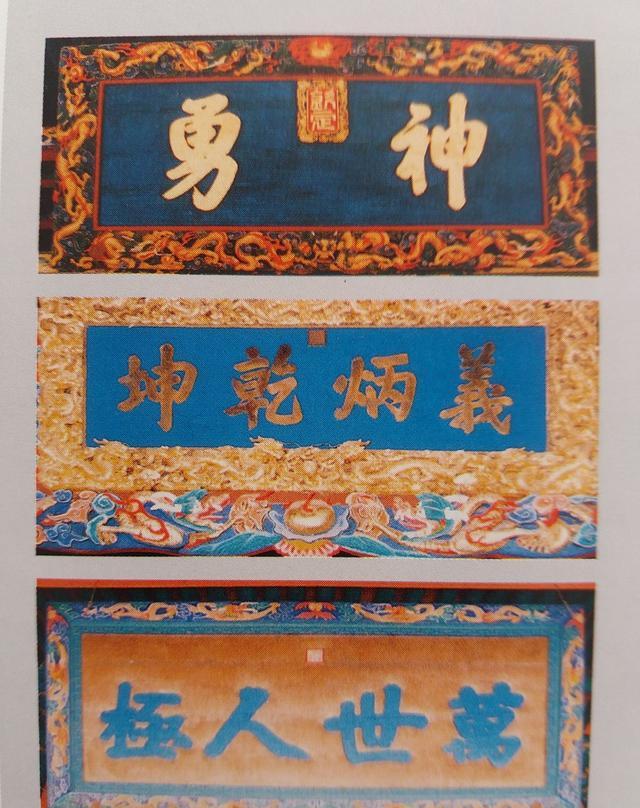 神勇
欽定
義炳乾坤
萬世人極